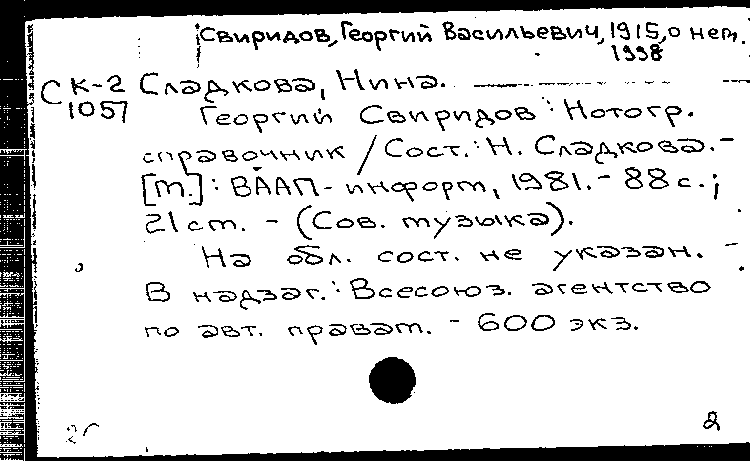 Свиридов, Георгий Васильевич, 1915, о нем.
1998
СК-2 Сладкова, Нина.
1057
Георгий Свиридов : Нотогр.
справочник / Сост.: Н. Сладкова. -
[М.] : ВААП-информ, 1981. - 88 с.;
21 см. - (Сов. музыка).
На обл. сост. не указан. -
В надзаг.: Всесоюз. агентство
по авт. правам. - 600 экз.
2